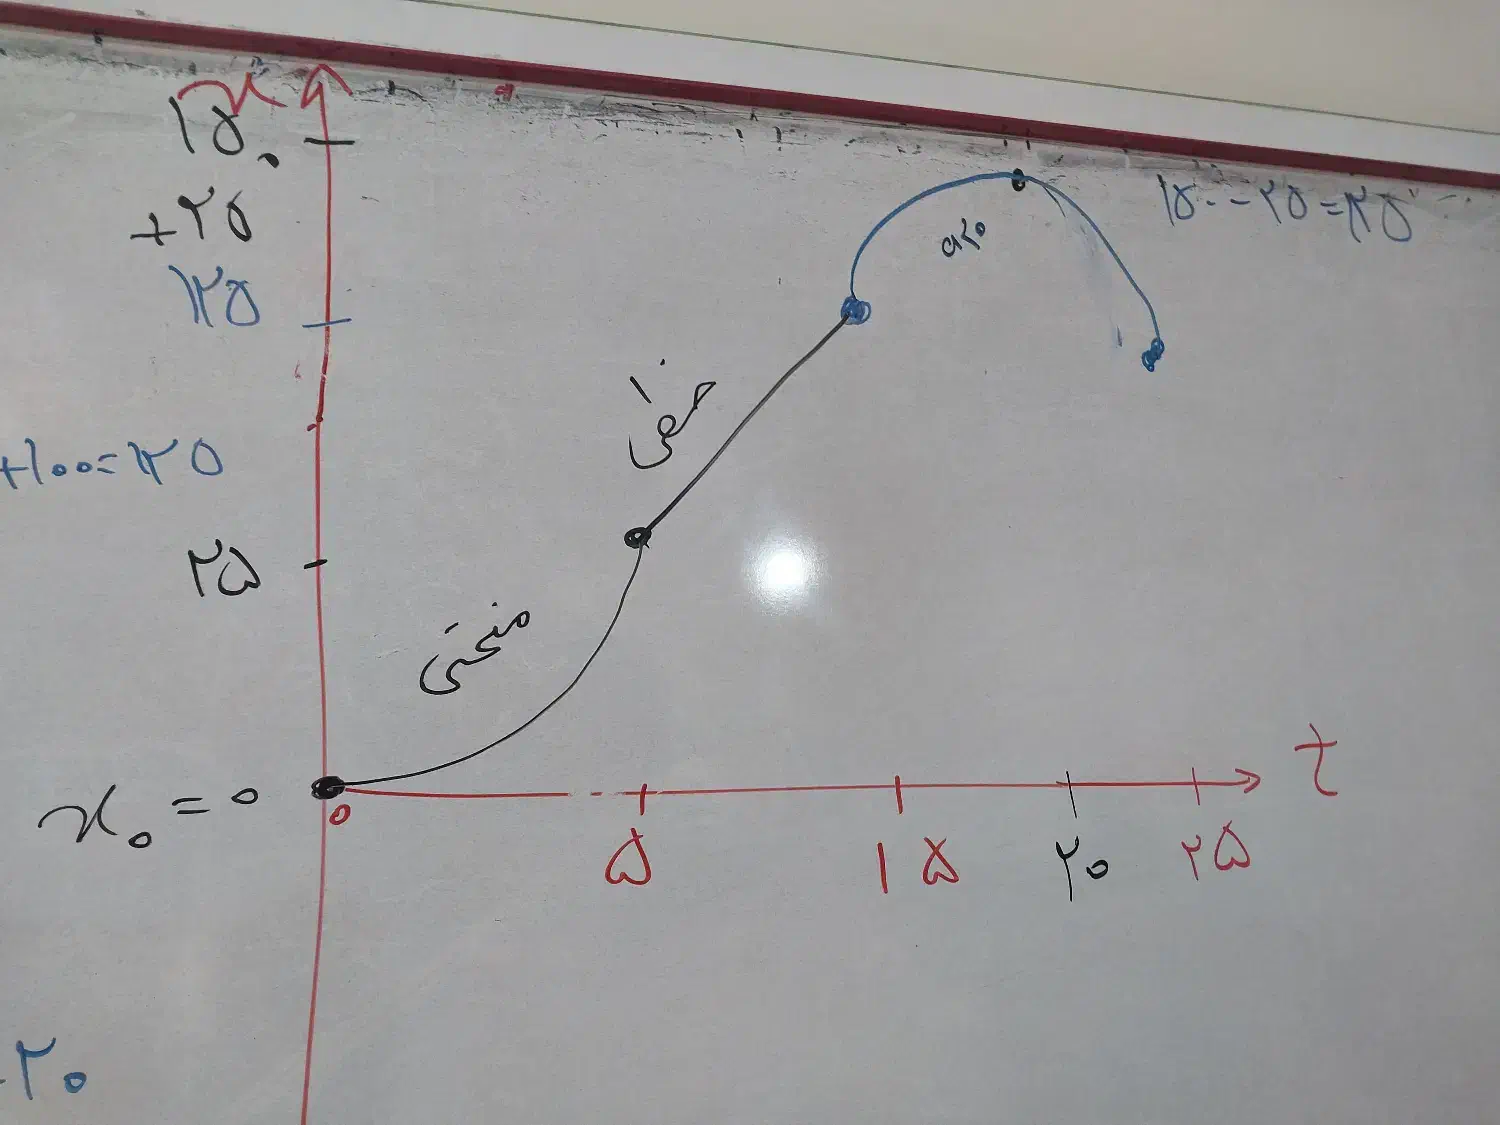 x
۱۵۰
+۲۵
۱۲۵
۱۵۰-۲۵=۱۲۵
a<0
خطی
+۱۰۰=۱۲۵
۲۵
منحنی
x₀ = 0
0
۵ ۱۵ ۲۰ ۲۵
t
-۲۰